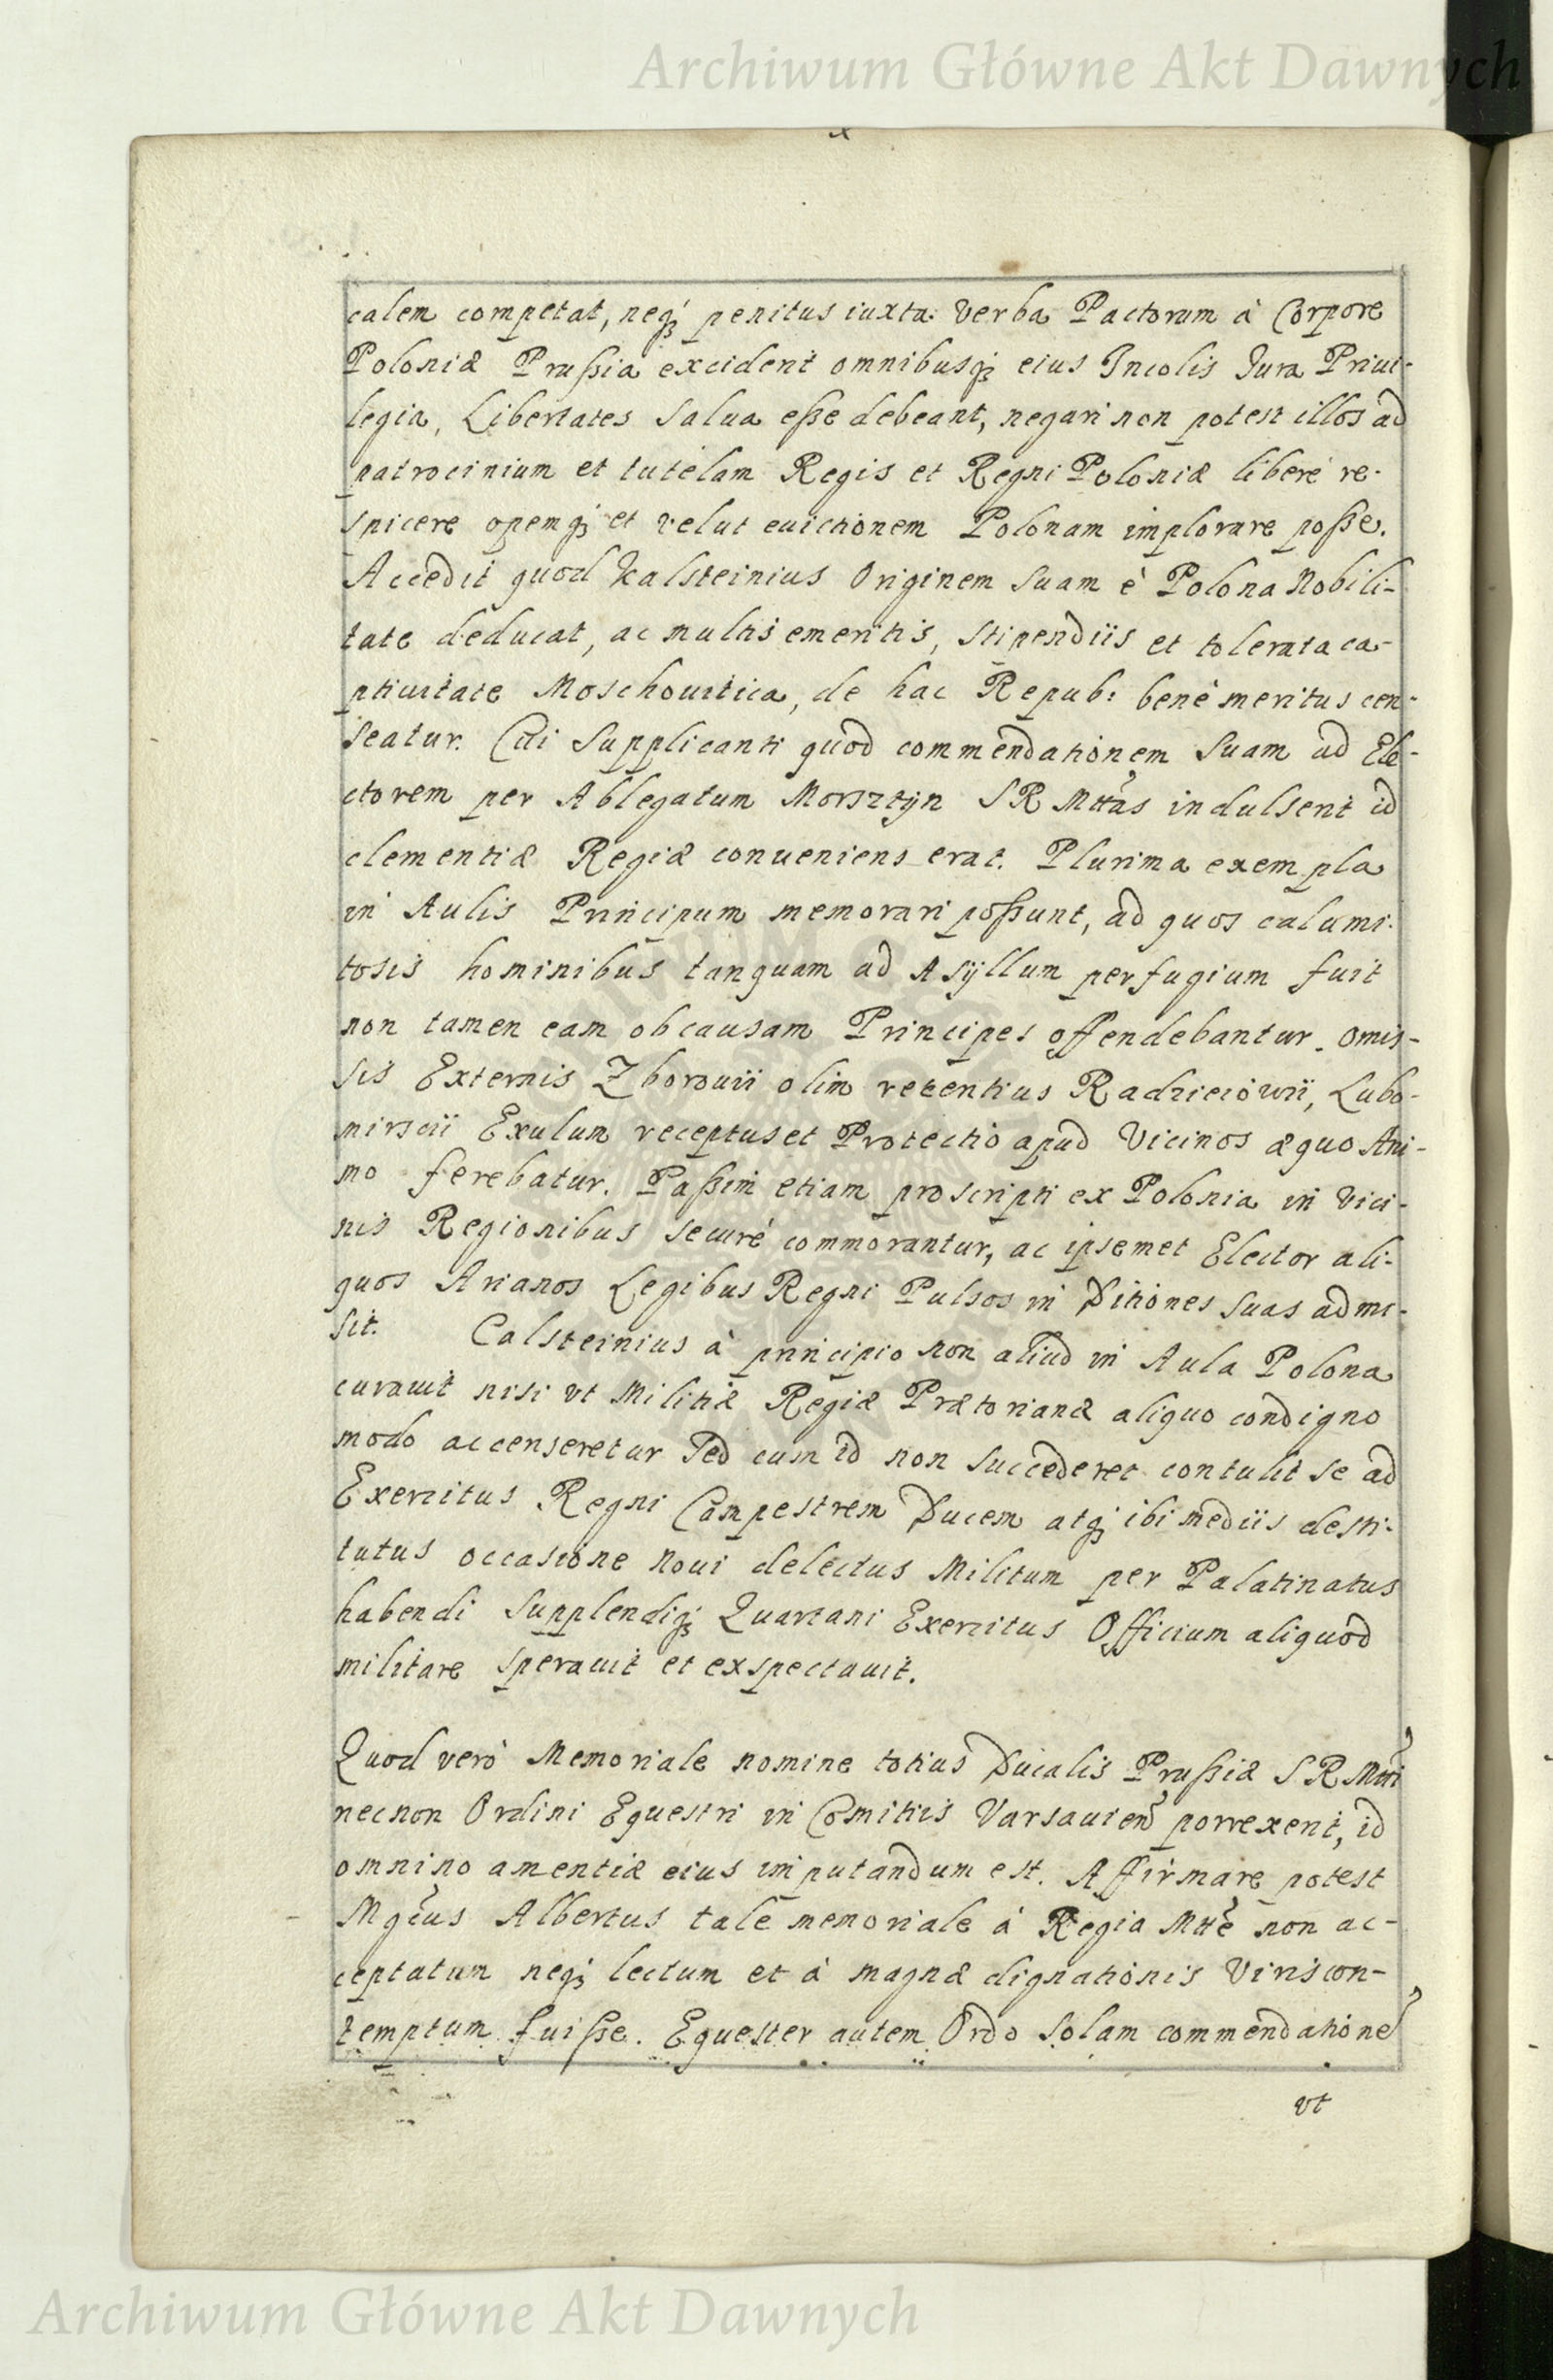 Archiwum Główne Akt Dawnych
calem competat, neqꝫ penitus iuxta Verba Pactorum à Corpore
Poloniæ Prußia exciderit omnibusqꝫ eius Incolis Jura Priui-
legia, Libertates Salua eße debeant, negari non potest illos ad
patrocinium et tutelam Regis et Regni Poloniæ liberè re-
spicere opemqꝫ et velut euictionem Polonam implorare poße.
Accedit quod Kalsteinius Originem Suam è Polona Nobili-
tate deducat, ac multis emeritis, Stipendiis et tolerata ca-
ptiuitate Moschouitica, de hac Repub: benè meritus cen-
seatur. Cui Supplicanti quod commendationem Suam ad Ele-
ctorem per Ablegatum Morsztyn S R Mttas indulserit id
clementiæ Regiæ conueniens erat. Plurima exempla
in Aulis Principum memorari poßunt, ad quos calami-
tosis hominibus tanquam ad Asÿllum perfugium fuit
non tamen eam ob causam Principes offendebantur. Omis-
sis Externis Zborouii olim recentius Radzieiowii, Lubo-
mirscii Exulum receptus et Protectio apud Vicinos æquo Ani-
mo ferebatur. Paßim etiam proscripti ex Polonia in Vici-
nis Regionibus Securè commorantur, ac ipsemet Elector ali-
quos Arianos Legibus Regni Pulsos in Ditiones Suas admi-
sit. Calsteinius à principio non aliud in Aula Polona
curauit nisi vt Militiæ Regiæ Prætorianæ aliquo condigno
modo accenseretur Sed cum id non Succederet contulit Se ad
Exercitus Regni Campestrem Ducem atqꝫ ibi mediis desti-
tutus occasione Noui delectus Militum per Palatinatus
habendi Supplendiqꝫ Quartani Exercitus Officium aliquod
militare Sperauit et exspectauit.
Quod verò Memoriale nomine totius Ducalis Prußiæ S R Mtti
necnon Ordini Equestri in Comitiis Varsauien porrexerit, id
omnino amentiæ eius imputandum est. Affirmare potest
Mgcus Albertus tale memoriale à Regia Mtte non ac-
ceptatum neqꝫ lectum et à magnæ dignationis Viris con-
temptum fuiße. Equester autem Ordo Solam commendatione
vt
Archiwum Główne Akt Dawnych